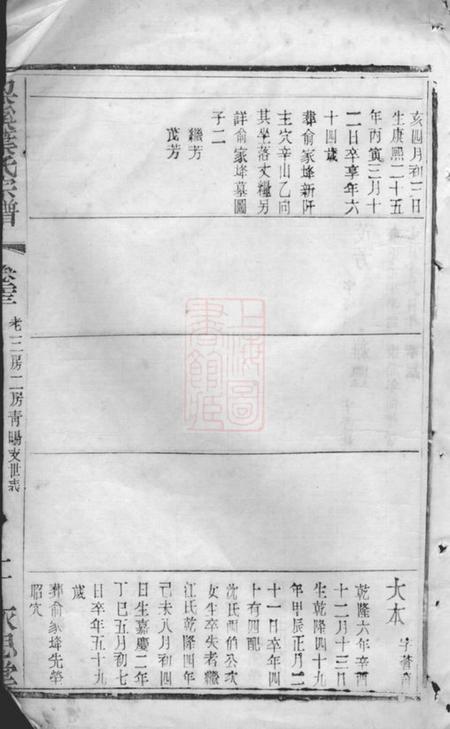 亥四月初三日
生康熙二十五
年丙寅三月十
二日卒享年六
十四歲
葬俞家垾新阡
主穴辛山乙向
其坐落丈糧另
詳俞家垾墓圖
子二
繼芳
茂芳
大本
乾隆六年辛酉
十二月十三日
生乾隆四十九
年甲辰正月二
十一日卒年四
十有四配
沈氏西伯公次
女生卒失考繼
江氏乾隆四年
己未八月初四
日生嘉慶二年
丁巳五月初七
日卒年五十九
歲
葬俞家垾先塋
昭穴
氏宗譜
老三房二房青暘支世表
上海圖書館藏